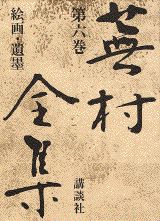 蕪村全集
第六巻
絵画・遺墨
講談社